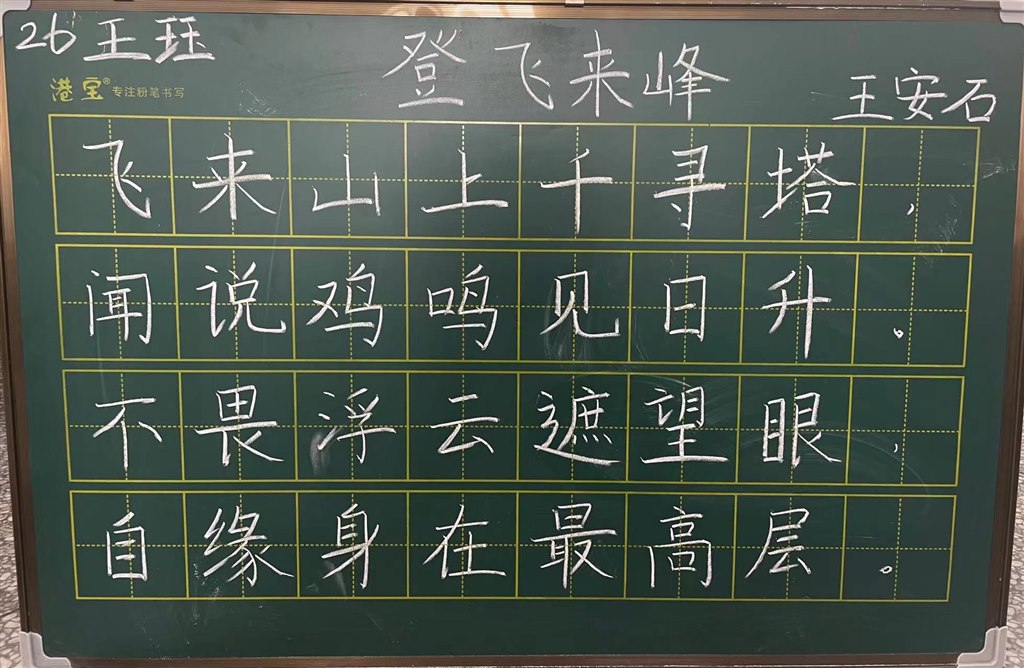 26 王珏
港宝® 专注粉笔书写
登飞来峰
王安石
飞来山上千寻塔，
闻说鸡鸣见日升。
不畏浮云遮望眼，
自缘身在最高层。